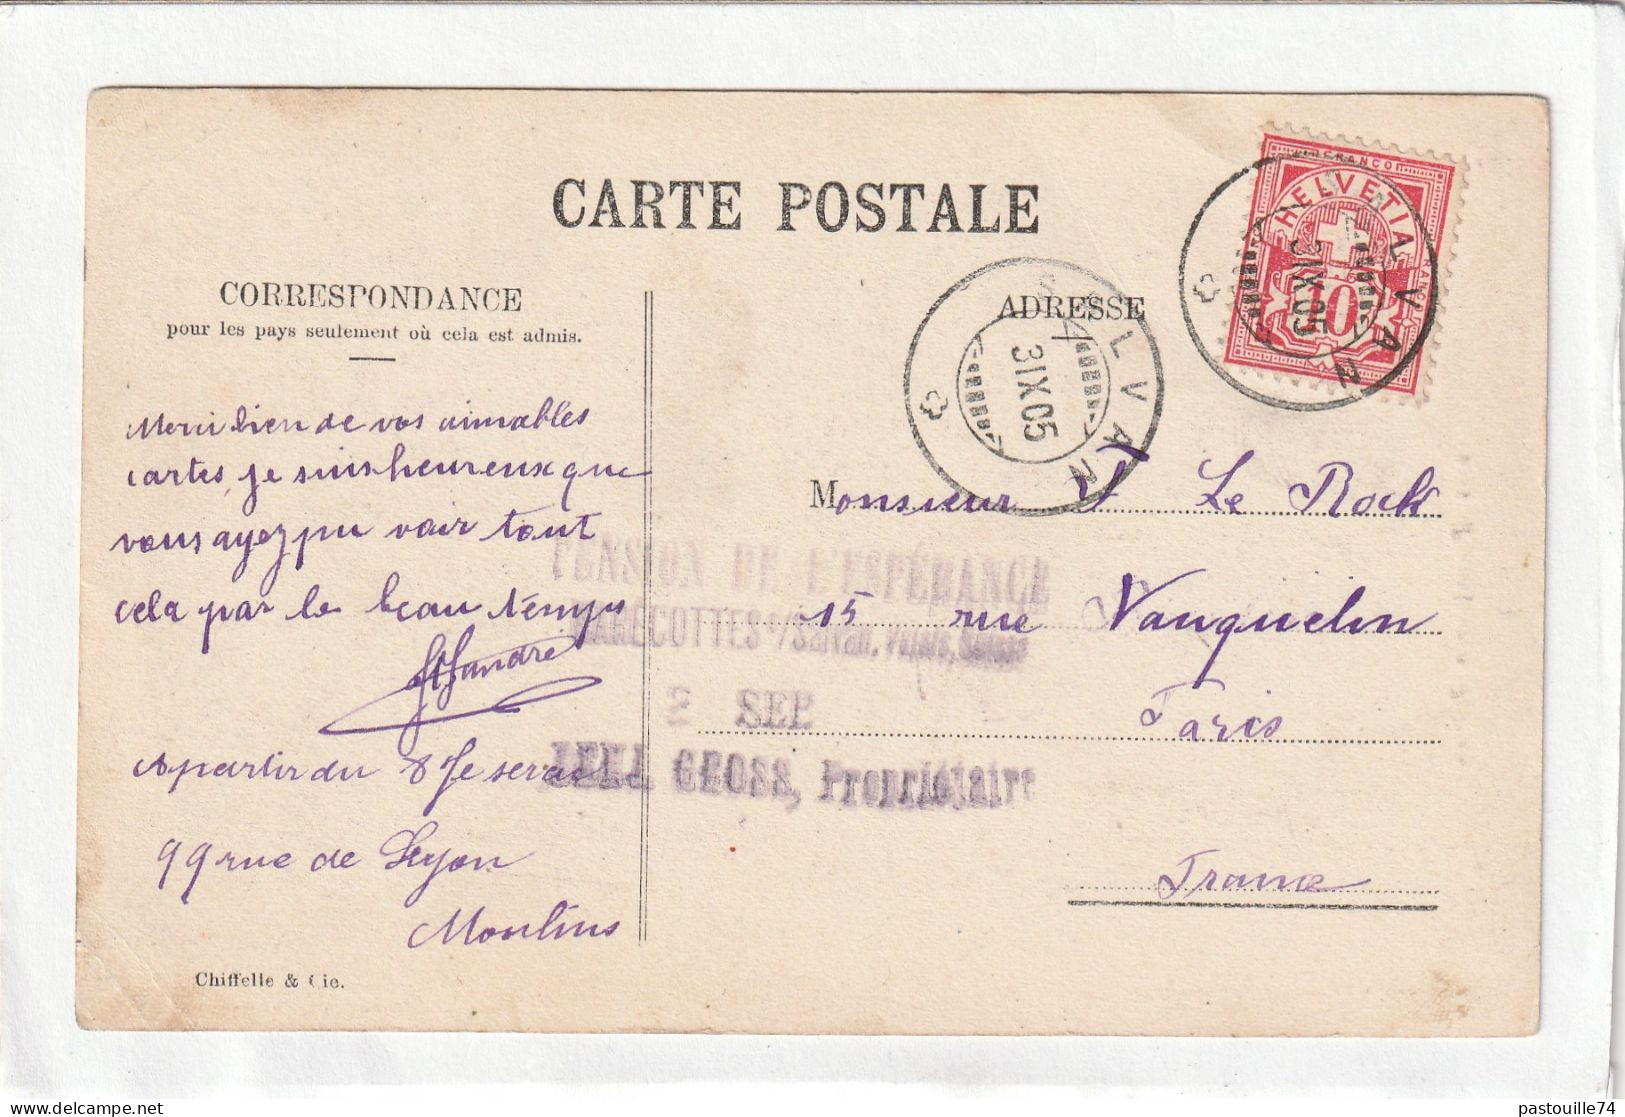 CARTE POSTALE
CORRESPONDANCE
pour les pays seulement où cela est admis.
ADRESSE
FRANCO
HELVETIA
FRANCO
10
SALVAN
3 IX 05
SALVAN
3 IX 05
Merci bien de vos aimables
cartes, je suis heureux que
vous ayez pu voir tout
cela par le beau temps
A partir du 8 je serai
99 rue de Lyon
Moulins
Monsieur Le Rock
15 rue Vauquelin
Paris
France
PENSION DE L'ESPÉRANCE
MARÉCOTTES s/Salvan, Valais, Suisse
2 SEP.
GROSS, Propriétaire
Chiffelle & Cie.
pastouille74